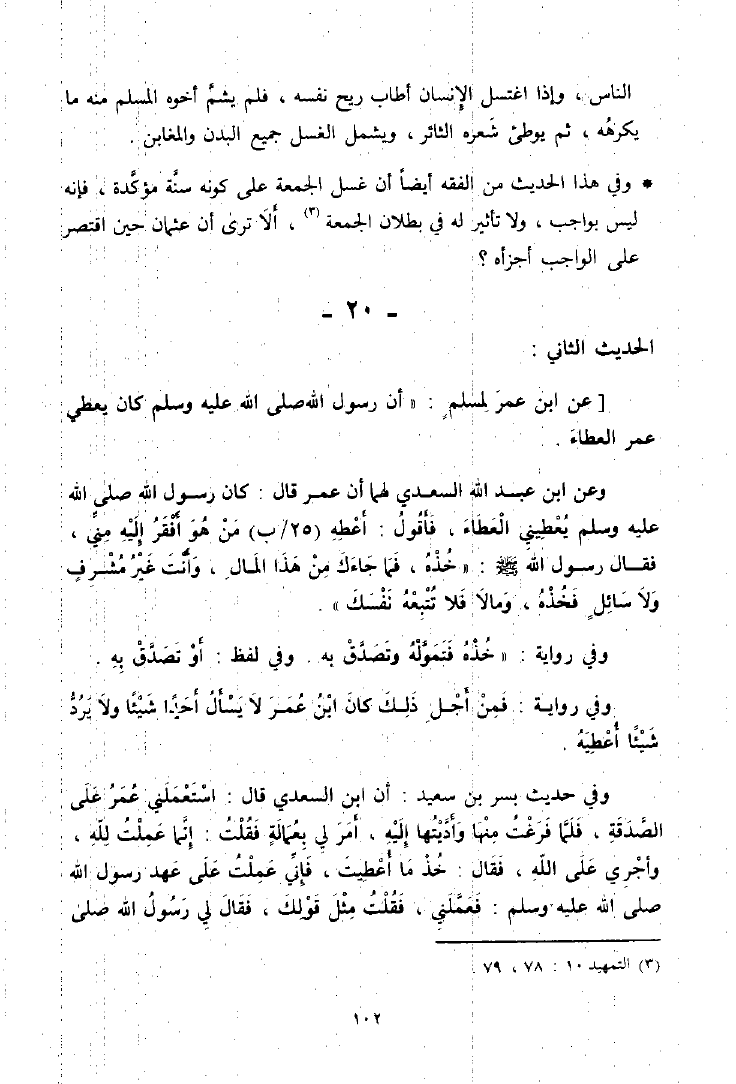 الناس ، وإذا اغتسل الإنسان أطاب ريح نفسه ، فلم يشمَّ أخوه المسلم منه ما
يكرهُه ، ثم يوطئ شَعره الثائر ، ويشمل الغسل جميع البدن والمغابن .
* وفي هذا الحديث من الفقه أيضاً أن غسل الجمعة على كونه سنَّة مؤكَّدة ، فإنه
ليس بواجب ، ولا تأثير له في بطلان الجمعة (٣) ، أَلَا ترى أن عثمان حين اقتصر
على الواجب أجزأه ؟
- ٢٠ -
الحديث الثاني :
[ عن ابن عمرَ لمسلمٍ : « أن رسول الله صلى الله عليه وسلم كان يعطي
عمر العطاءَ .
وعن ابن عبد الله السعدي لهما أن عمر قال : كان رسول الله صلى الله
عليه وسلم يُعْطِيني العَطَاءَ ، فَأَقُولُ : أَعْطهِ (٢٥/ب) مَنْ هُوَ أَفْقَرُ إِلَيْهِ مِنِّي ،
فقال رسول الله ﷺ : « خُذْهُ ، فَمَا جَاءَكَ مِنْ هَذَا المَالِ ، وَأَنْتَ غَيْرُ مُشْرِفٍ
وَلَا سَائِلٍ فَخُذْهُ ، وَمالَا فَلا تُتْبِعْهُ نَفْسَكَ » .
وفي رواية : « خُذْهُ فَتَمَوَّلْهُ وتَصَدَّقْ به . وفي لفظ : أَوْ تَصَدَّقْ بِهِ .
وفي رواية : فَمِنْ أَجْلِ ذَلِكَ كانَ ابْنُ عُمَرَ لاَ يَسْأَلُ أحَدًا شَيْئًا ولَا يَرُدُّ
شَيْئًا أُعْطِيَهُ .
وفي حديث بسر بن سعيد : أن ابن السعدي قال : اسْتَعْمَلَني عُمَرُ عَلَى
الصَّدَقَةِ ، فَلَمَّا فَرَغْتُ مِنْهَا وَأَدَّيْتُها إِلَيْهِ ، أَمَرَ لي بِعُمَالَةٍ فَقُلْتُ : إِنَّما عَمِلْتُ لِلّهِ ،
وأَجْرِي عَلَى اللّهِ ، فَقَال : خُذ مَا أُعْطِيتَ ، فَإِنِّي عَمِلْتُ عَلَى عَهد رسول الله
صلى الله عليه وسلم : فَعَمَّلَنِي ، فَقُلْتُ مِثْلَ قَوْلِكَ ، فَقَالَ لِي رَسُولُ الله صلى
(٣) التمهيد ١٠ : ٧٨ ، ٧٩ .
١٠٢